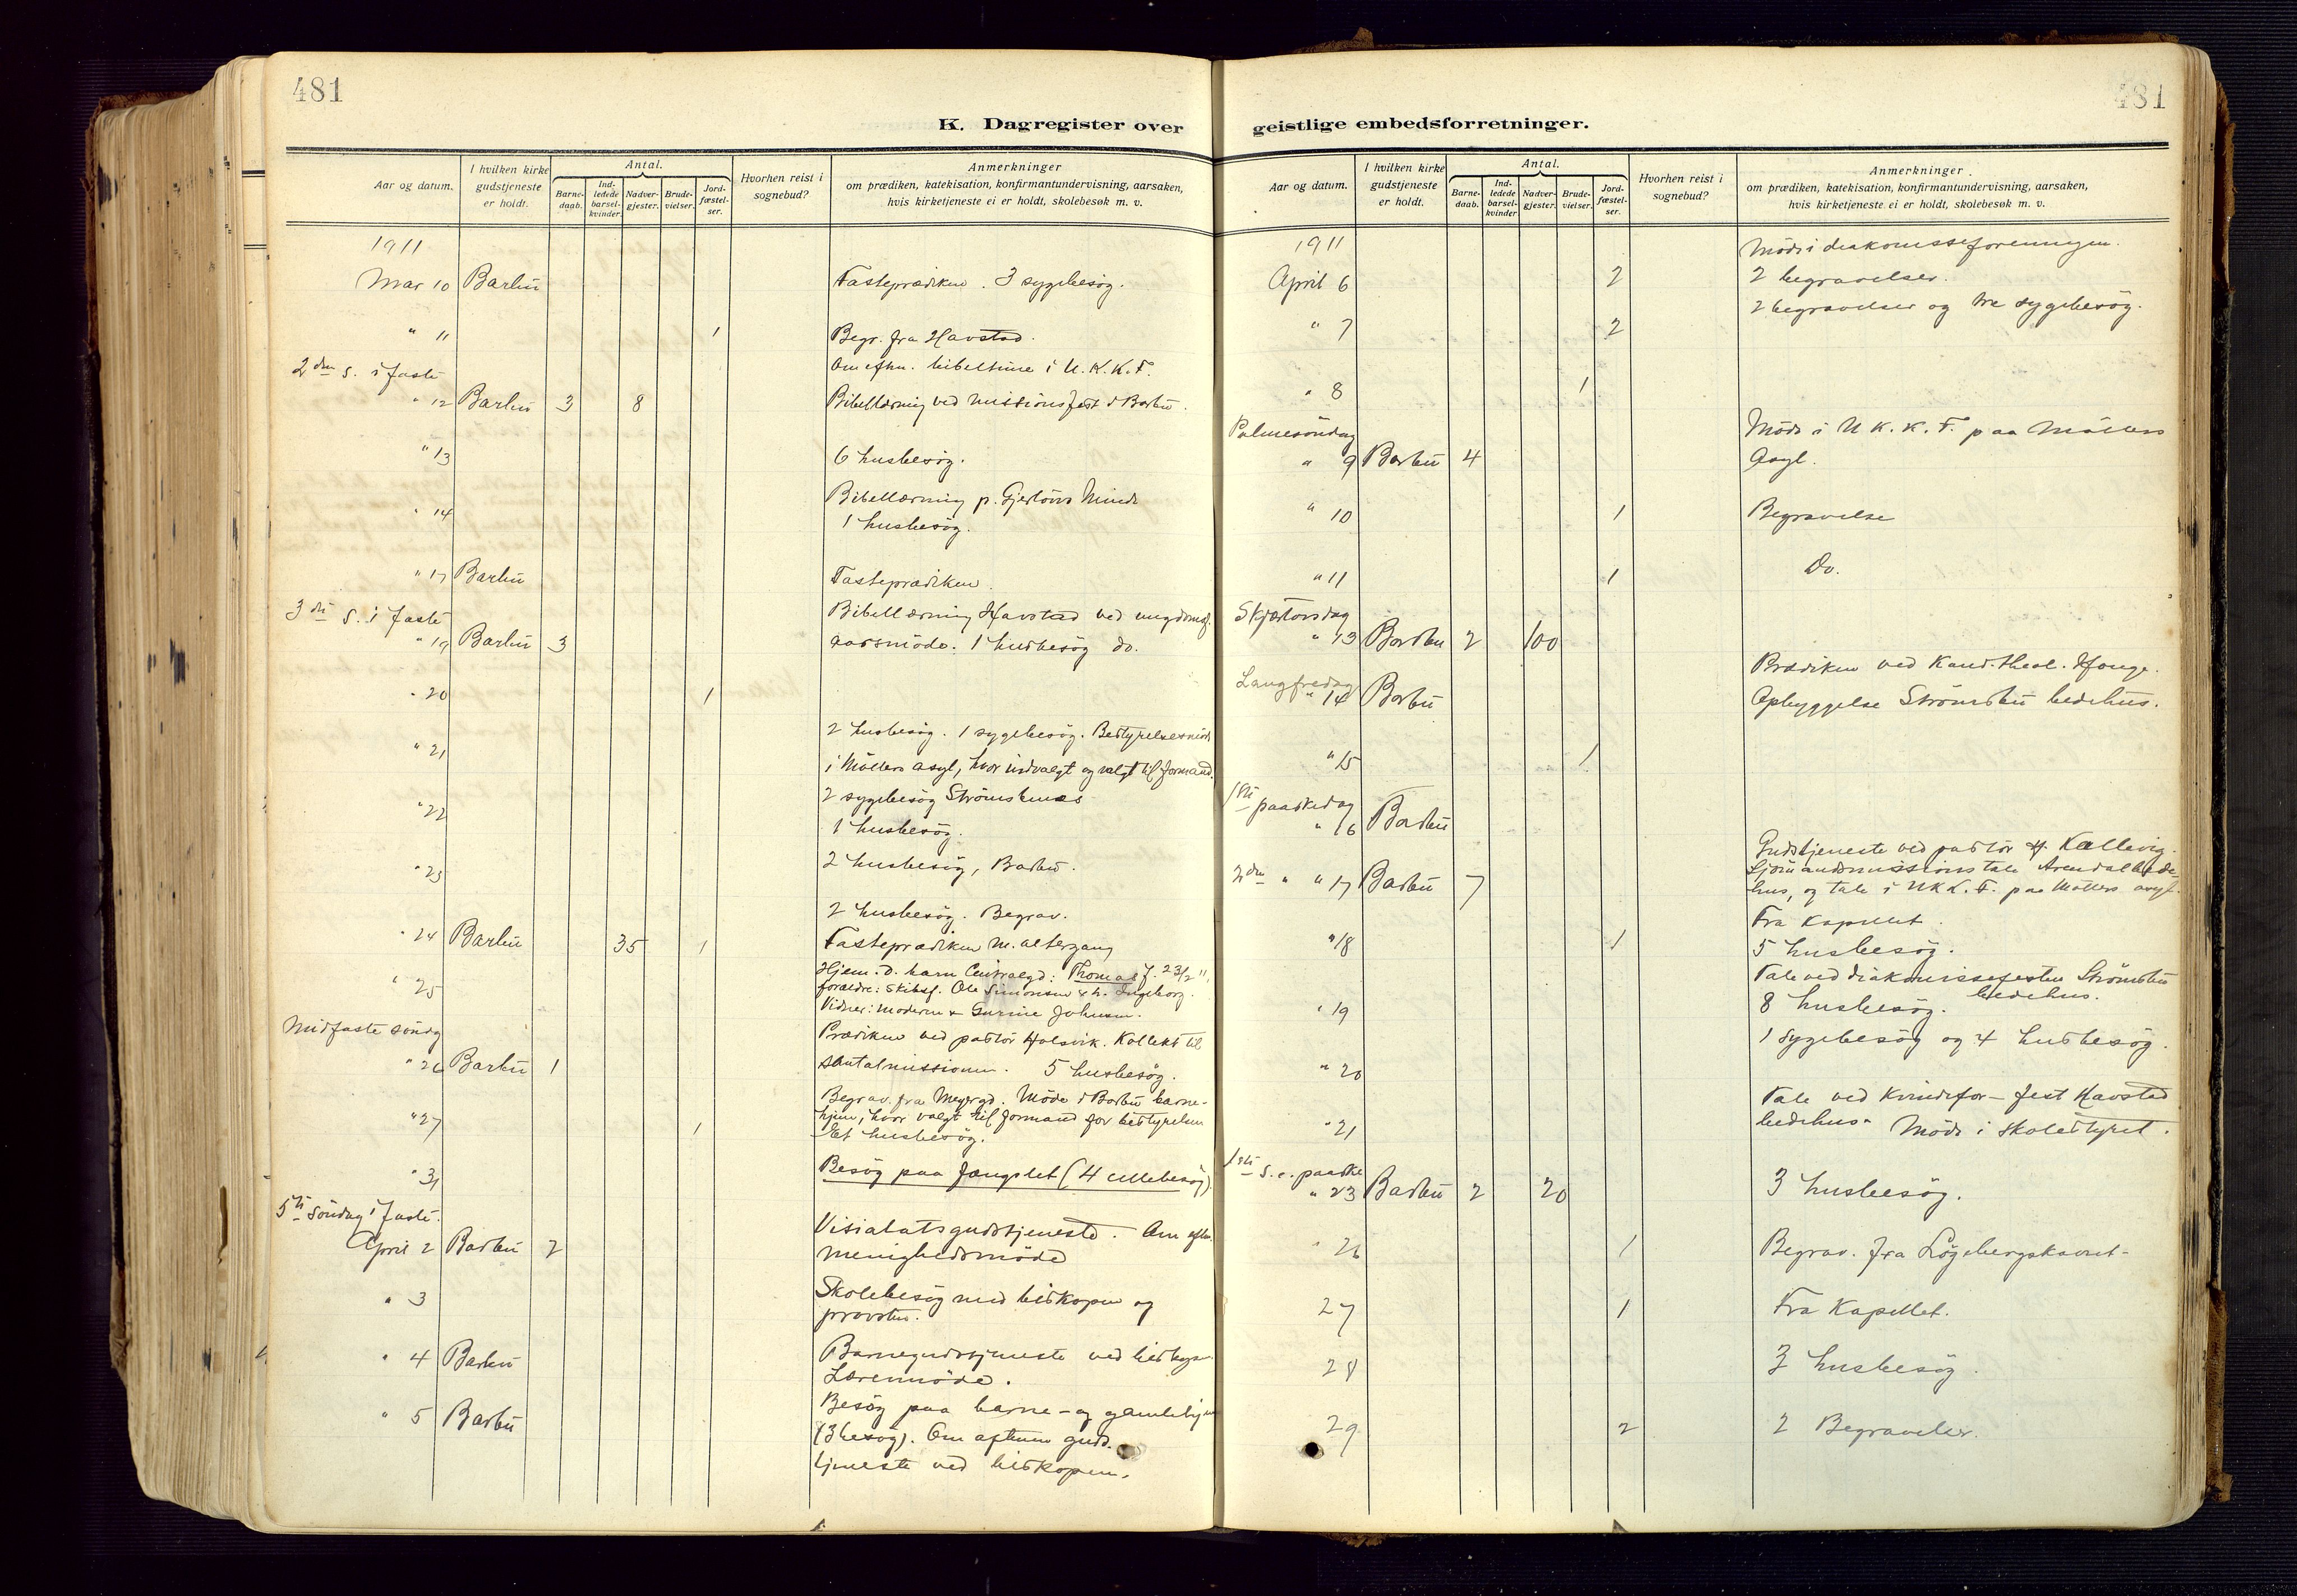 481
K. Dagregister over
Aar og datum.
I hvilken kirke gudstjeneste er holdt.
Antal.
Barne-daab.
Ind-ledede barsel-kvinder.
Nadver-gjester.
Brude-vielser.
Jord-fæstel-ser.
Hvorhen reist i sognebud?
Anmerkninger
om prædiken, katekisation, konfirmantundervisning, aarsaken,
hvis kirketjeneste ei er holdt, skolebesøk m. v.
1911
Mar 10 Barbu Fasteprædiken. 3 sygebesøg.
" 11 1 Begr. fra Havstad.
2den s. i faste Om eftm. bibeltime i U.K.K.F.
" 12 Barbu 3 8 Bibellæsning ved missionsfest i Barbu.
" 13 6 husbesøg.
" 14 Bibellæsning p. Minde
1 husbesøg.
" 17 Barbu Fasteprædiken.
3die s. i faste Bibellæsning Havstad ved ungdomsf.
" 19 Barbu 3 aarsmøde. 1 husbesøg do.
" 20 1
" 21 2 husbesøg. 1 sygebesøg. Bestyrelsesmøde
i Møllers asyl, hvor indvalgt og valgt til formand.
" 22 2 sygebesøg Strømsbunes
1 husbesøg.
" 23 2 husbesøg, Barbu.
2 husbesøg. Begrav.
" 24 Barbu 35 1 Fasteprædiken m. altergang
" 25 Hjem. d. barn : Thomas f. 23/2 11,
forældre: Skibsf. Ole Simonsen & h. Ingeborg.
Vidner: moderen & Gurine Johnsen.
Midfaste søndg Prædiken ved pastor Holsvik. Kollekt til
" 26 Barbu 1 santalmissionen. 5 husbesøg.
" 27 1 Begrav. fra Meyergd. Møde i Barbu barne-
hjem, hvor valgt til formand for bestyrelsen
Et husbesøg.
" 31 Besøg paa fængslet (4 cellebesøg)
5te søndag i faste.
April 2 Barbu 2 Visitatsgudstjeneste. Om eftm.
menighedsmøde
" 3 Skolebesøg med biskopen og
provsten.
" 4 Barbu Barnegudstjeneste ved biskop.
Læremøde.
" 5 Barbu Besøg paa barne- og gamlehjem
(3 besøg). Om aftenen guds-
tjeneste ved biskopen.
481
geistlige embedsforretninger.
Aar og datum.
I hvilken kirke gudstjeneste er holdt.
Antal.
Barne-daab.
Ind-ledede barsel-kvinder
Nadver-gjester.
Brude-vielser.
Jord-fæstel-ser.
Hvorhen reist i sognebud?
Anmerkninger
om prædiken, katekisation, konfirmantundervisning, aarsaken,
hvis kirketjeneste ei er holdt, skolebesøk m. v.
1911 Møde i diakonisseforeningen.
April 6 2 2 begravelser.
" 7 2 2 begravelser og tre sygebesøg.
" 8 1
Palmesøndag Møde i U.K.K.F. paa Møllers
" 9 Barbu 4 Asyl.
" 10 1 Begravelse
" 11 1 Do.
Skjærtorsdag
" 13 Barbu 2 100
Langfredag Prædiken ved Kand. theol. Hauge.
" 14 Barbu Opbyggelse Strømsbu bedehus.
" 15 1
1ste paaskedag
" 16 Barbu
2den " " 17 Barbu 7 Gudstjeneste ved pastor H. Kallevig.
Sjømandsmissions tale Arendal bede-
hus, og tale i UKKF. paa Møllers asyl.
" 18 1 Fra Kapellet.
5 husbesøg.
" 19 Tale ved diakonissefesten Strømsbu
bedehus.
8 husbesøg.
" 20 1 sygebesøg og 4 husbesøg.
" 21 Tale ved kvindefor- fest Havstad
bedehus. Møde i skolestyret.
1ste s. e. paaske
" 23 Barbu 2 20 3 husbesøg.
" 26 1 Begrav. fra
27 1 Fra Kapellet.
28 3 husbesøg.
29 2 2 Begravelser.